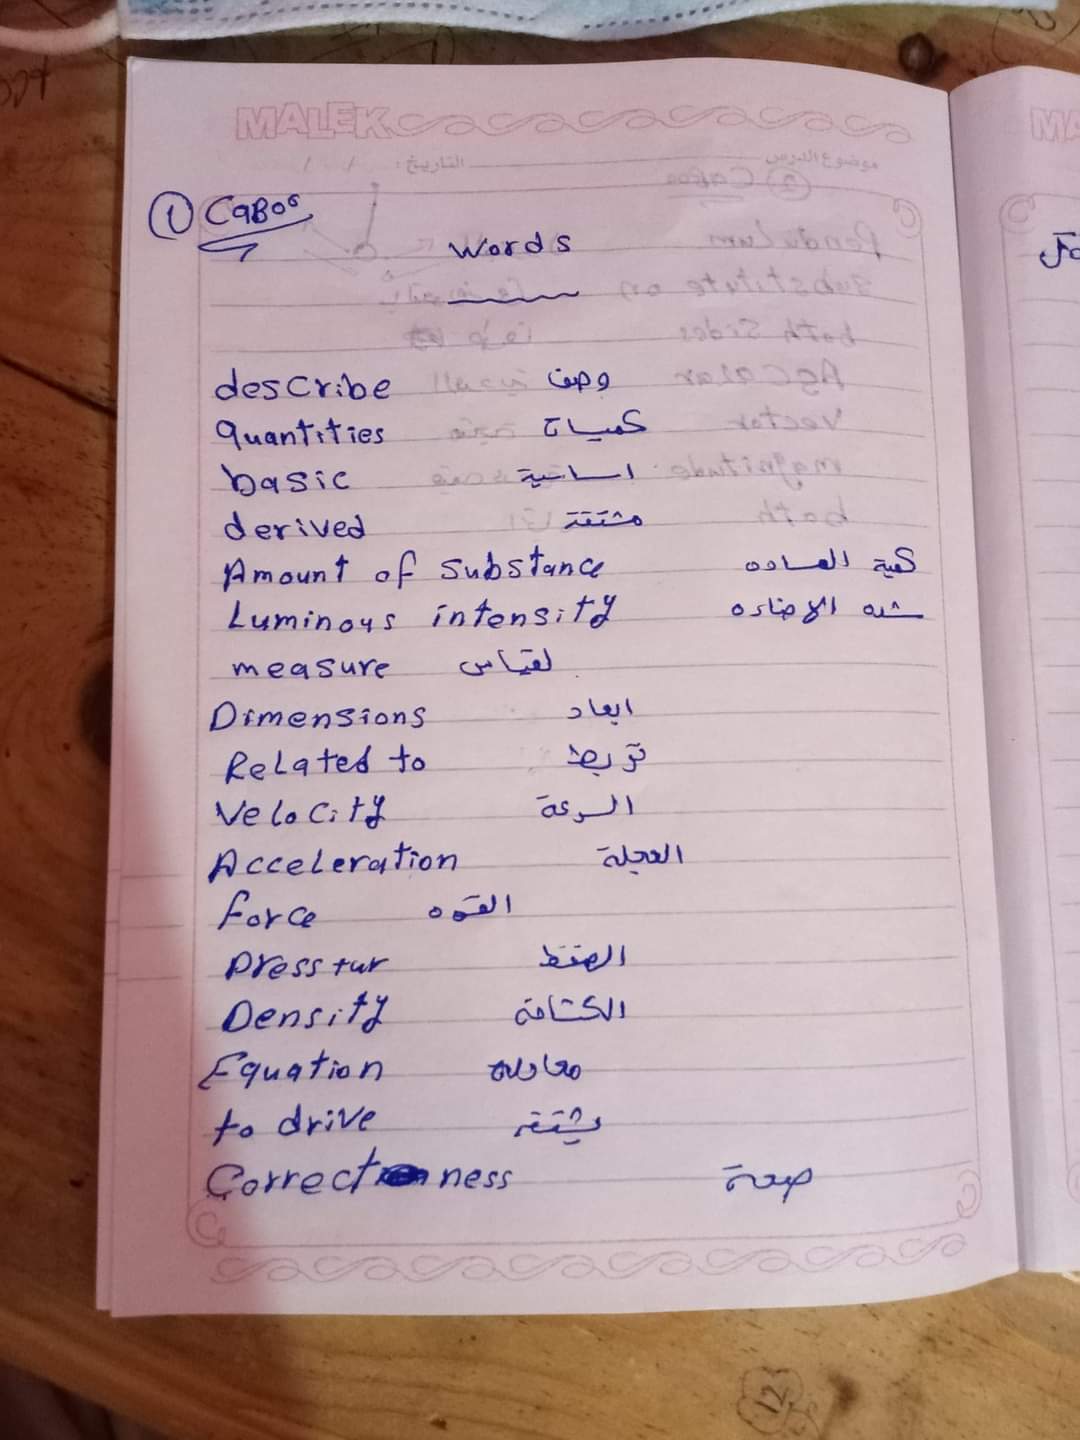 MALEK
موضوع الدرس التاريخ: / /
① CaBos
Words
describe وصف
quantities كميات
basic اساسية
derived مشتقة
Amount of substance كمية الماده
Luminous intensity شده الاضاءه
measure لقياس
Dimensions ابعاد
Related to تربط
Velocity السرعة
Acceleration العجلة
force القوه
Presstur الضغط
Density الكثافة
Equation معادلة
to drive يشتق
Correctness صحة